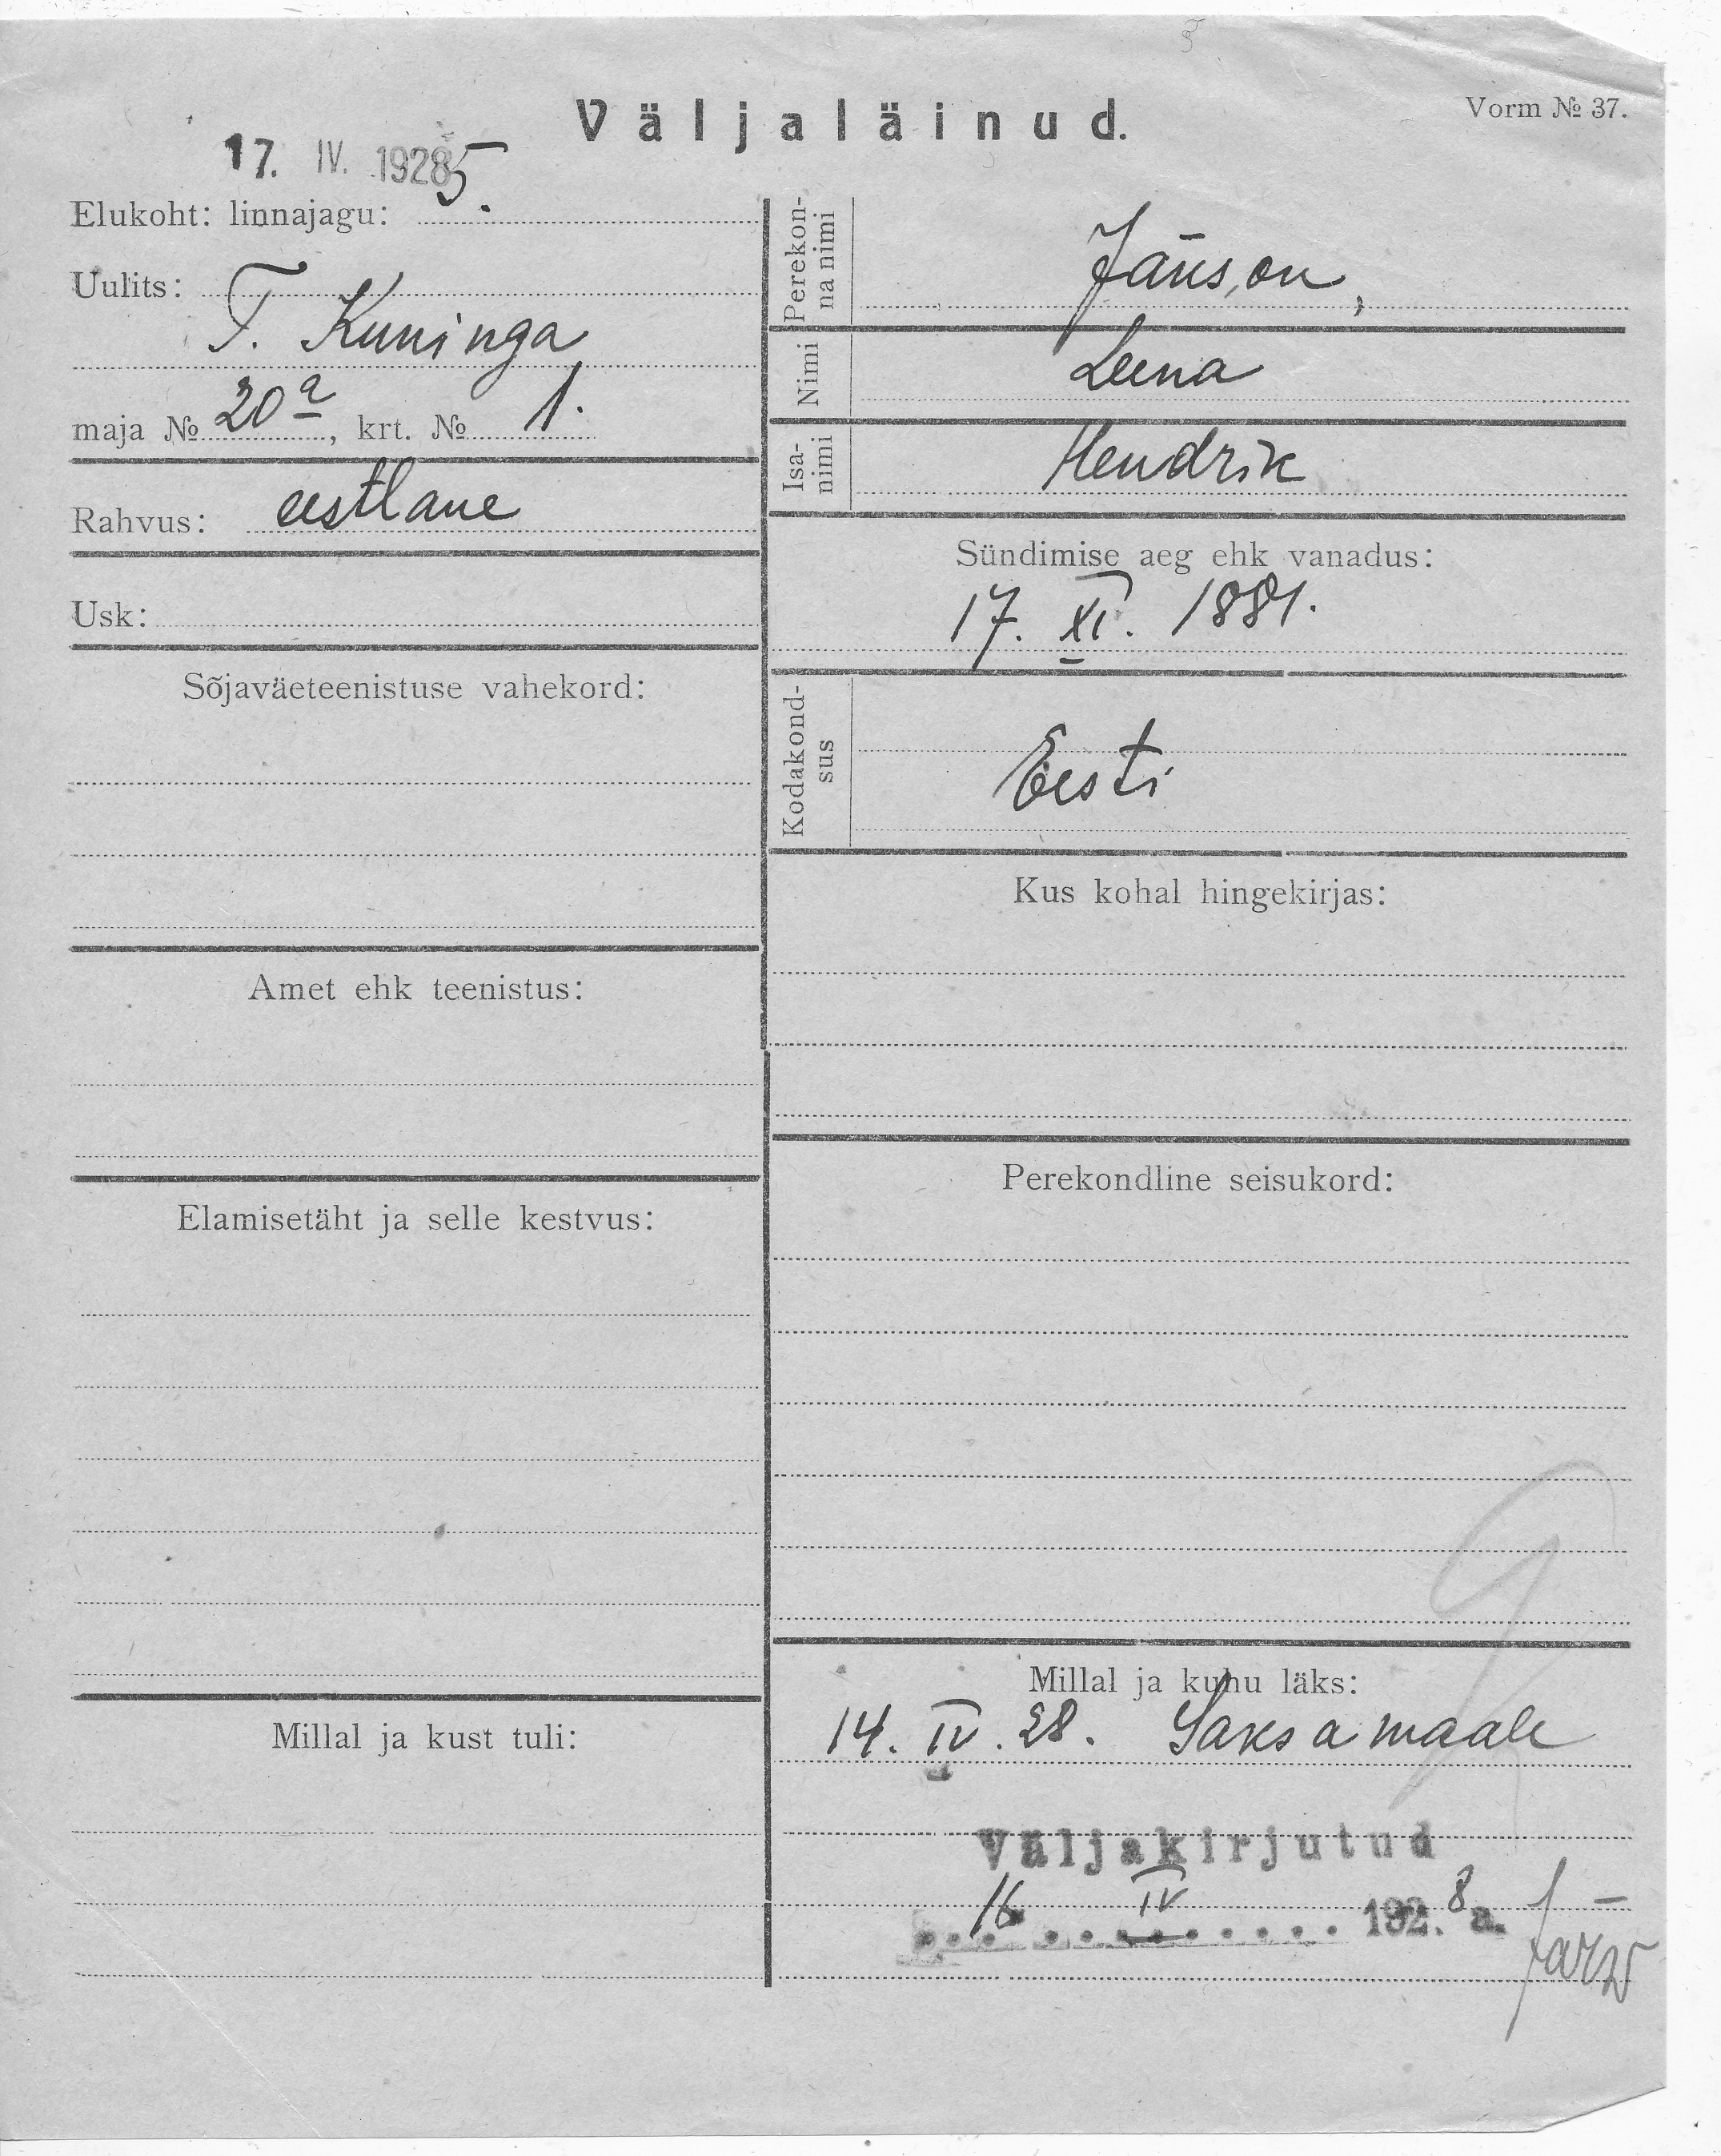 Väljaläinud.
Vorm № 37.
17. IV. 1928
Elukoht: linnajagu: 5.
Uulits:
T. Kuninga
maja № 20ª, krt. № 1.
Rahvus: eestlane
Usk:
Sõjaväeteenistuse vahekord:
Amet ehk teenistus:
Elamisetäht ja selle kestvus:
Millal ja kust tuli:
Perekon-
na nimi
Jānson,
Nimi
Leena
Isa-
nimi
Hendrik
Sündimise aeg ehk vanadus:
17. XI. 1881.
Kodakond-
sus
Eesti
Kus kohal hingekirjas:
Perekondline seisukord:
Millal ja kuhu läks:
14. IV. 28. Saksamaale
Väljakirjutud
16 IV 1928 a.